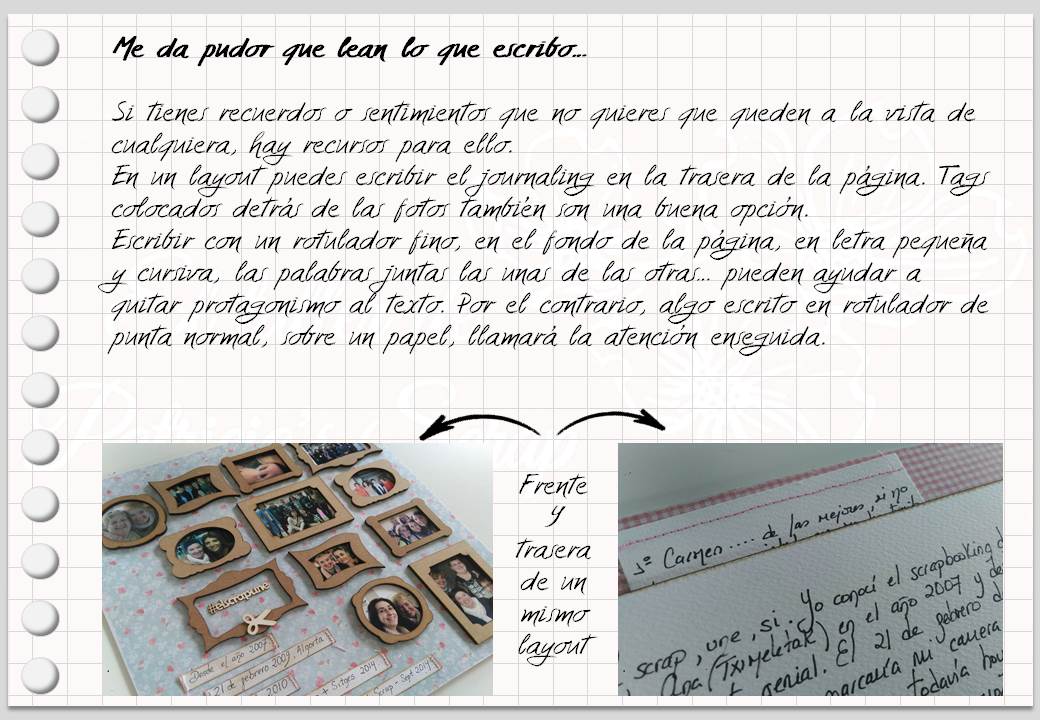 Me da pudor que lean lo que escribo...
Si tienes recuerdos o sentimientos que no quieres que queden a la vista de
cualquiera, hay recursos para ello.
En un layout puedes escribir el journaling en la trasera de la página. Tags
colocados detrás de las fotos también son una buena opción.
Escribir con un rotulador fino, en el fondo de la página, en letra pequeña
y cursiva, las palabras juntas las unas de las otras... pueden ayudar a
quitar protagonismo al texto. Por el contrario, algo escrito en rotulador de
punta normal, sobre un papel, llamará la atención enseguida.
Frente
y
trasera
de un
mismo
layout
#elscrapune
Desde el año 2007
21 de febrero 2009, Algorta
2010
+ Sitges 2014
Scrap - Sept 2017
1º Carmen .... de las mejores, si no
scrap, une, si. Yo conocí el scrapbooking
Ana (Txipeletak) en el año 2007 y de
genial. El 21 de febrero d
marcaría mi carrera
todavía hou